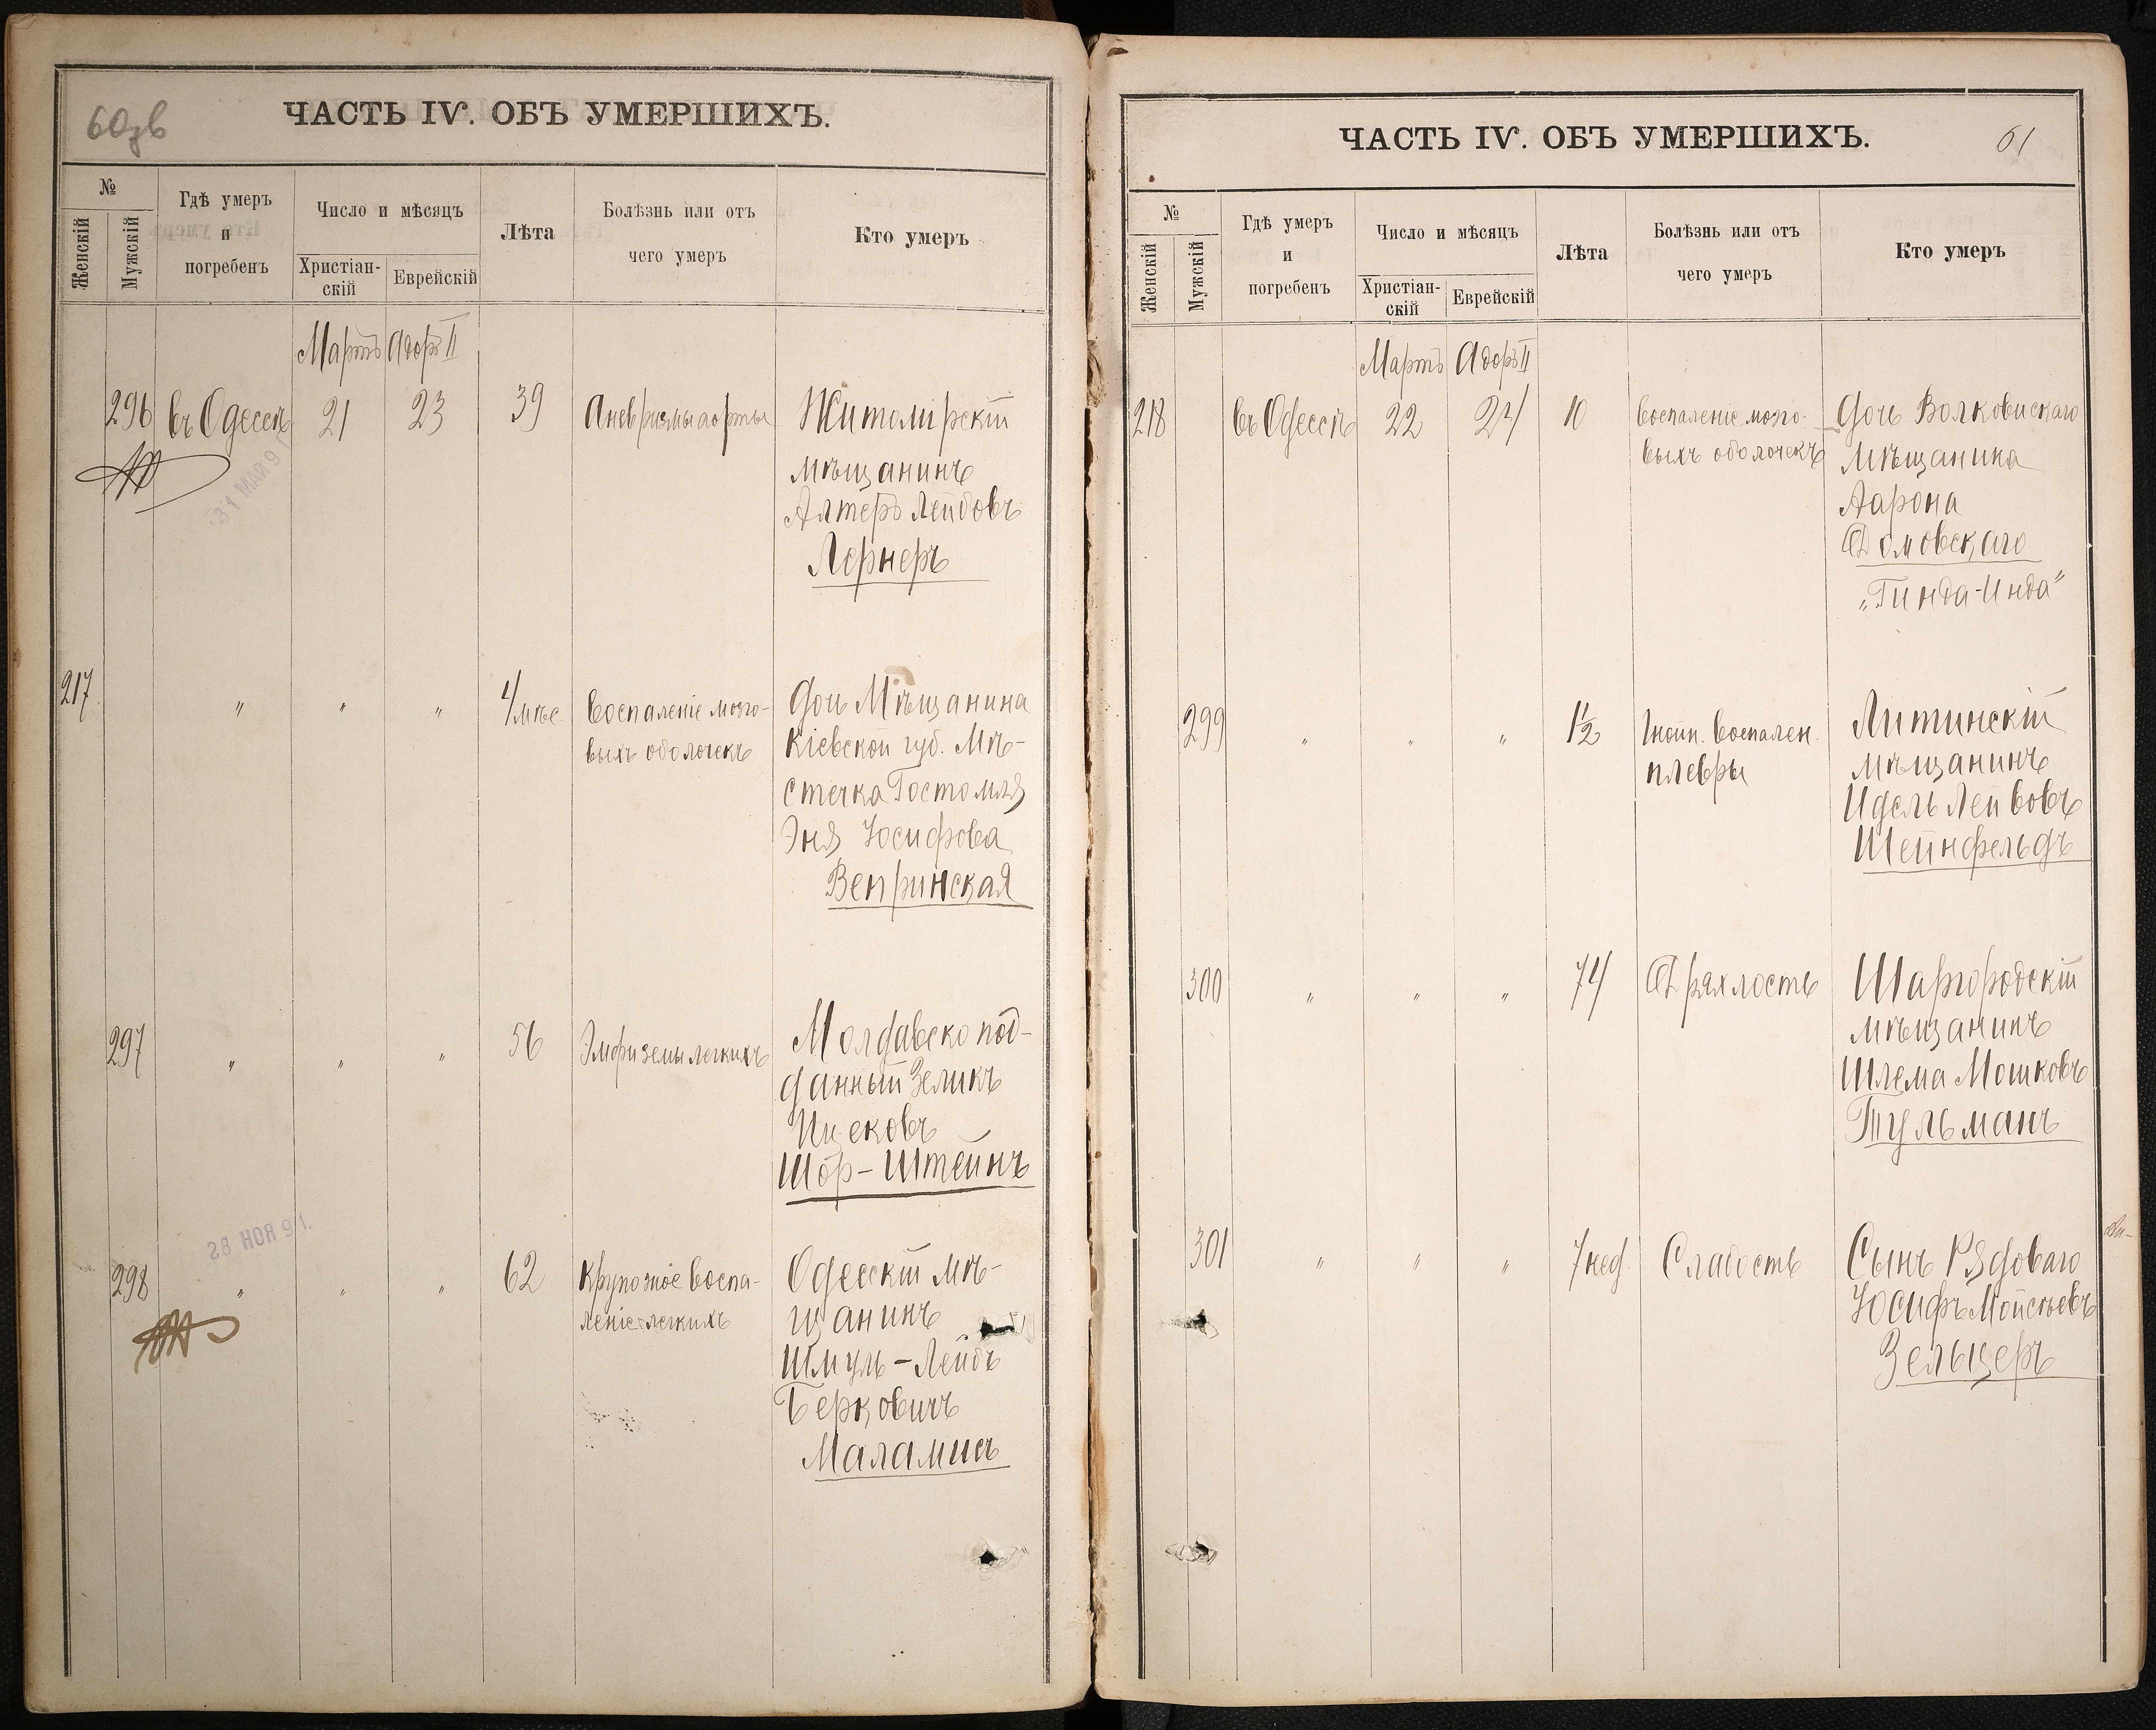 60зв
ЧАСТЬ IV. ОБЪ УМЕРШИХЪ.
№
Женскій
Мужскій
Гдѣ умеръ
и
погребенъ
Число и мѣсяцъ
Христіан-
скій
Еврейскій
Лѣта
Болѣзнь или отъ
чего умеръ
Кто умеръ
Мартъ Адоръ II
296 въ Одессѣ 21 23 39 Аневризмы аорты Житомірскій
мѣщанинъ
Алтеръ Лейбовъ
Лернеръ
31 МАЙ 9
217 " " " 4/мѣс. Воспаленіе мозго- Дочь Мѣщанина
выхъ оболочекъ Кіевской губ. Мѣ-
стечка Гостомля
Эня Іосифова
Вепринская
297 " " " 56 Эмфиземы легкихъ Молдавско под-
данный Зеликъ
Ицековъ
Шор-Штейнъ
28 НОЯ 91.
298 " " " 62 Крупозное воспа- Одесскій мѣ-
леніе легкихъ щанинъ
Шмуль-Лейбъ
Берковичъ
Маламисъ
ЧАСТЬ IV. ОБЪ УМЕРШИХЪ.
61
№
Женскій
Мужскій
Гдѣ умеръ
и
погребенъ
Число и мѣсяцъ
Христіан-
скій
Еврейскій
Лѣта
Болѣзнь или отъ
чего умеръ
Кто умеръ
Мартъ Адоръ II
218 въ Одессѣ 22 24 10 Воспаленіе мозго- Дочь Волковискаго
выхъ оболочекъ Мѣщанина
Аарона
Домовскаго
„Гинда-Инда"
299 " " " 1½ Гнойн. Воспален. Литинскій
плевры мѣщанинъ
Идель Лейбовъ
Шейнфельдъ
300 " " " 74 Дряхлость Шаргородскій
мѣщанинъ
Шлема Мошковъ
Тульманъ
301 " " " 7 нед. Слабость Сынъ Рядоваго
Іосифъ Мойсѣевъ
Зельцеръ